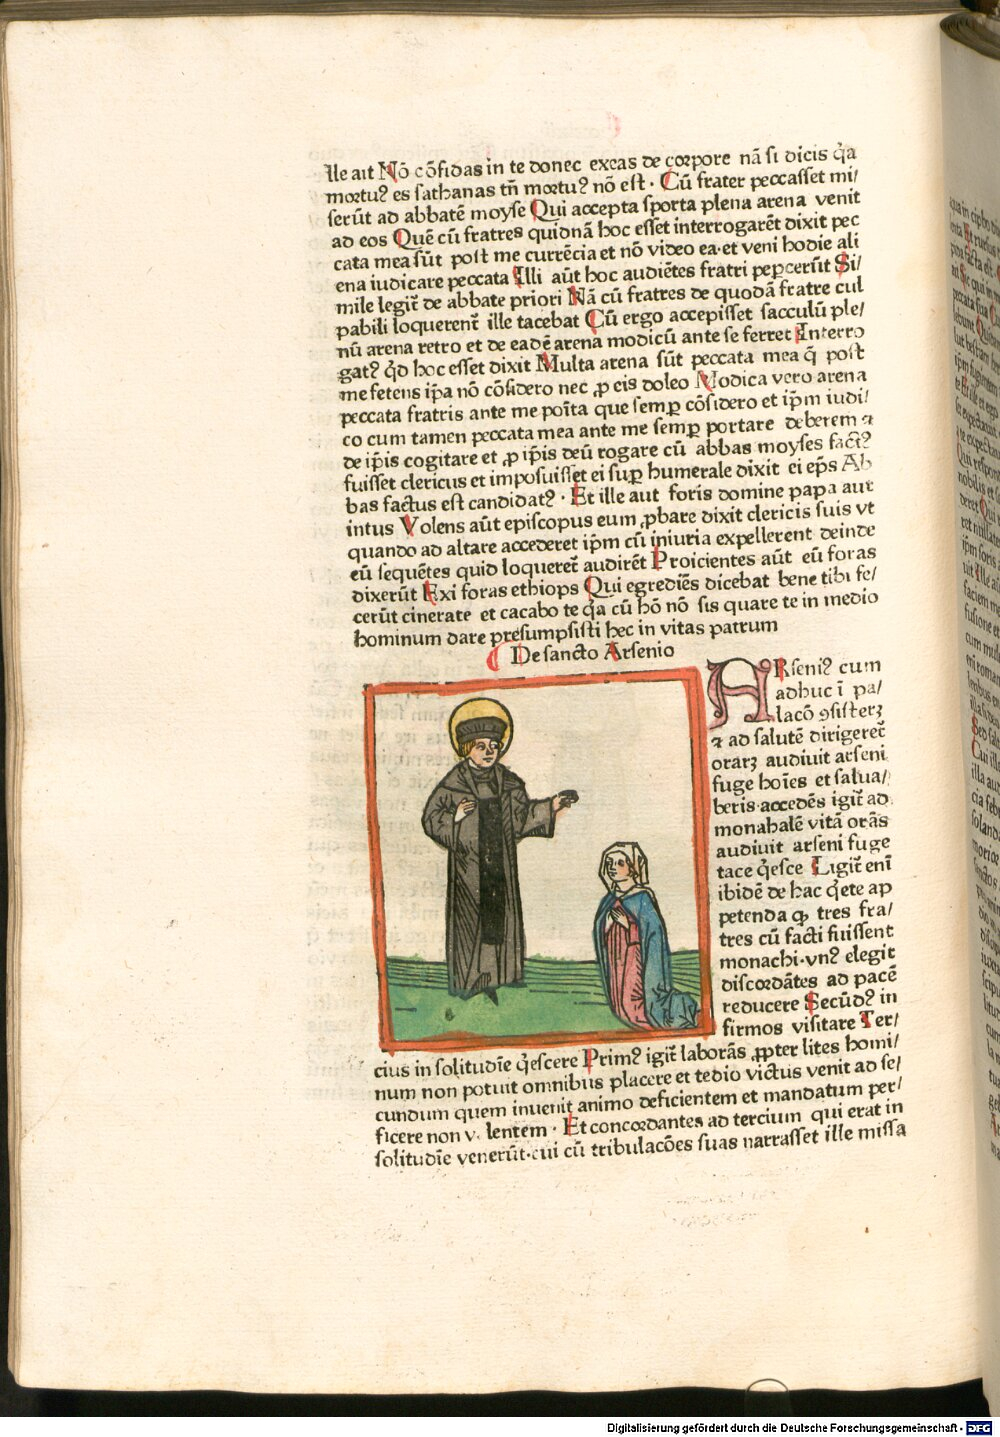 Ille ait Nō cōfidas in te donec exeas de corpore nā si dicis q̄a
mortuꝰ es sathanas tn̄ mortuꝰ nō est · Cū frater peccasset mi/
serūt ad abbatē moyse Qui accepta sporta plena arena venit
ad eos Quē cū fratres quidnā hoc esset interrogarēt dixit pec
cata mea sūt post me currēcia et nō video ea·et veni hodie ali
ena iudicare peccata Illi aūt hoc audiētes fratri pepercerūt Si/
mile legit̄ de abbate priori Nā cū fratres de quodā fratre cul
pabili loquerent̄ ille tacebat Cū ergo accepisset sacculū ple/
nū arena retro et de eadē arena modicū ante se ferret Interro
gatꝰ q̄d hoc esset dixit Multa arena sūt peccata mea q̄ post
me fetens ip̄a nō cōsidero nec ꝓ eis doleo Modica vero arena
peccata fratris ante me poīta que semꝑ cōsidero et ip̄m iudi/
co cum tamen peccata mea ante me semꝑ portare deberem ⁊
de ip̄is cogitare et ꝓ ip̄is deū rogare cū abbas moyses factꝰ
fuisset clericus et imposuisset ei suꝑ humerale dixit ei ep̄s Ab
bas factus est candidatꝰ · Et ille aut foris domine papa aut
intus Volens aūt episcopus eum ꝓbare dixit clericis suis vt
quando ad altare accederet ip̄m cū iniuria expellerent deinde
eū sequētes quid loqueret̄ audirēt Proicientes aūt eū foras
dixerūt Exi foras ethiops Qui egrediēs dicebat bene tibi fe/
cerūt cinerate et cacabo te q̄a cū hō nō sis quare te in medio
hominum dare presumpsisti hec in vitas patrum
De sancto Arsenio
ARseniꝰ cum
adhuc ī pa/
lacō ꝯsisterꝫ
⁊ ad salutē dirigeret̄
orarꝫ audiuit arseni
fuge hoīes et salua/
beris·accedēs igit̄ ad
monahalē vitā orās
audiuit arseni fuge
tace q̄esce Ligit̄ enī
ibidē de hac q̄ete ap
petenda ꝙ tres fra/
tres cū facti fuissent
monachi·vnꝰ elegit
discordātes ad pacē
reducere Secūdꝰ in
firmos visitare Ter/
cius in solitudīe q̄escere Primꝰ igit̄ laborās ꝓpter lites homi/
num non potuit omnibus placere et tedio victus venit ad se/
cundum quem inuenit animo deficientem et mandatum per/
ficere non v lentem · Et concordantes ad tercium qui erat in
solitudīe venerūt·cui cū tribulacōes suas narrasset ille missa
Digitalisierung gefördert durch die Deutsche Forschungsgemeinschaft - DFG